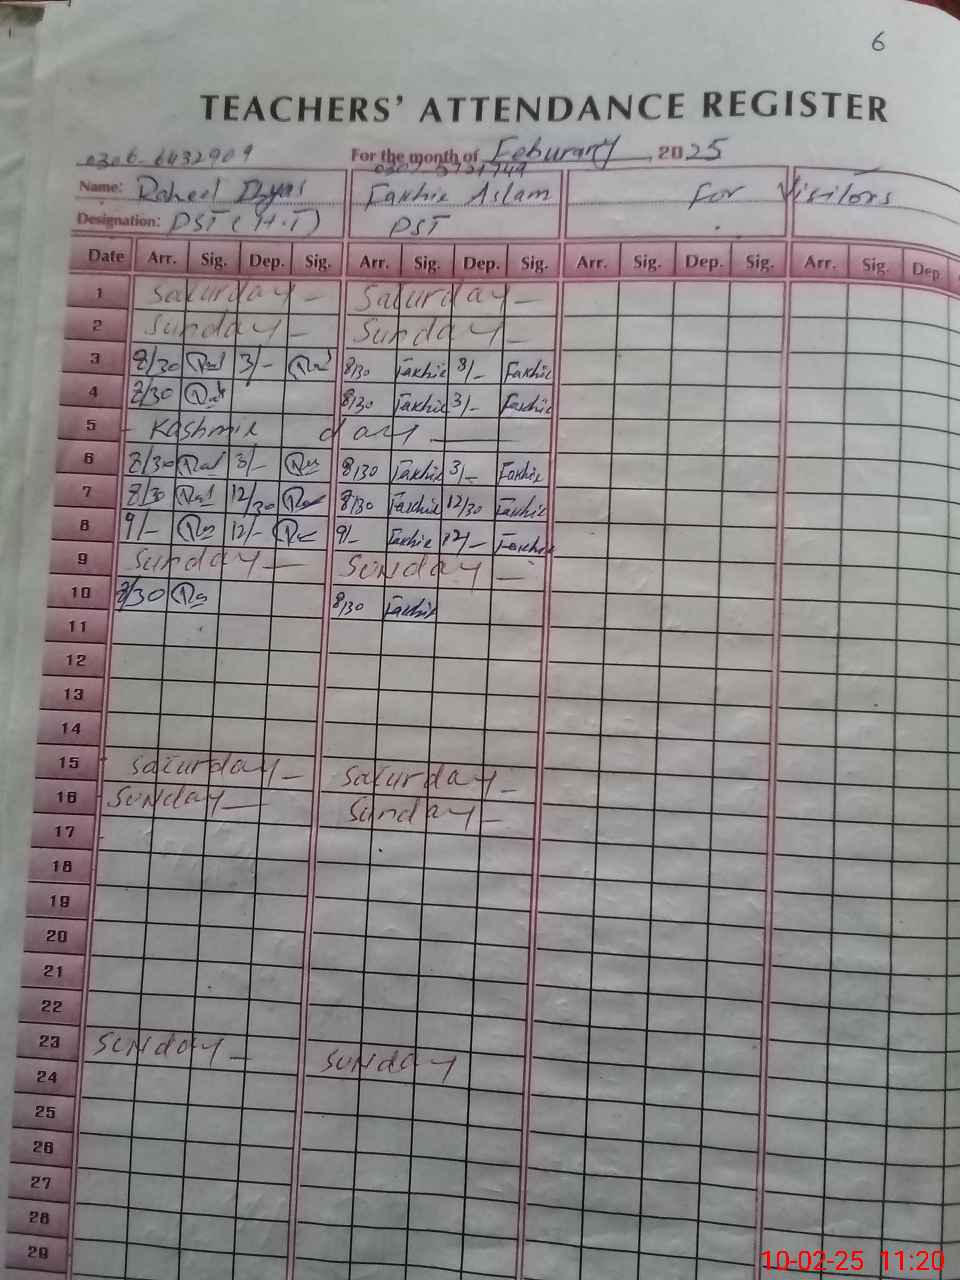 6
TEACHERS' ATTENDANCE REGISTER
0306-6432909 For the month of Feburary, 2025
Name: Raheel Fakhir Aslam For Visitors
Designation: PST (H.T) PST
Date Arr. Sig. Dep. Sig. Arr. Sig. Dep. Sig. Arr. Sig. Dep. Sig. Arr. Sig. Dep
1 Saturday - Saturday -
2 Sunday - Sunday -
3 8/30 3/- 8/30 Fakhir 8/- Fakhir
4 8/30 8/30 Fakhir 3/- Fakhir
5 - Kashmir day
6 8/30 3/- 8/30 Fakhir 3/- Fakhir
7 8/30 12/30 8/30 Fakhir 12/30 Fakhir
8 9/- 12/- 9/- Fakhir 12/- Fakhir
9 Sunday - Sunday -
10 8/30 8/30 Fakhir
11
12
13
14
15 Saturday - Saturday -
16 Sunday - Sunday -
17
18
19
20
21
22
23 Sunday - Sunday
24
25
26
27
28
29
10-02-25 11:20